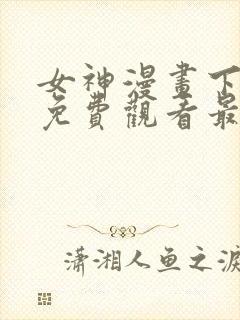 女神漫畫下
免費觀看最
瀟湘人鱼之淚